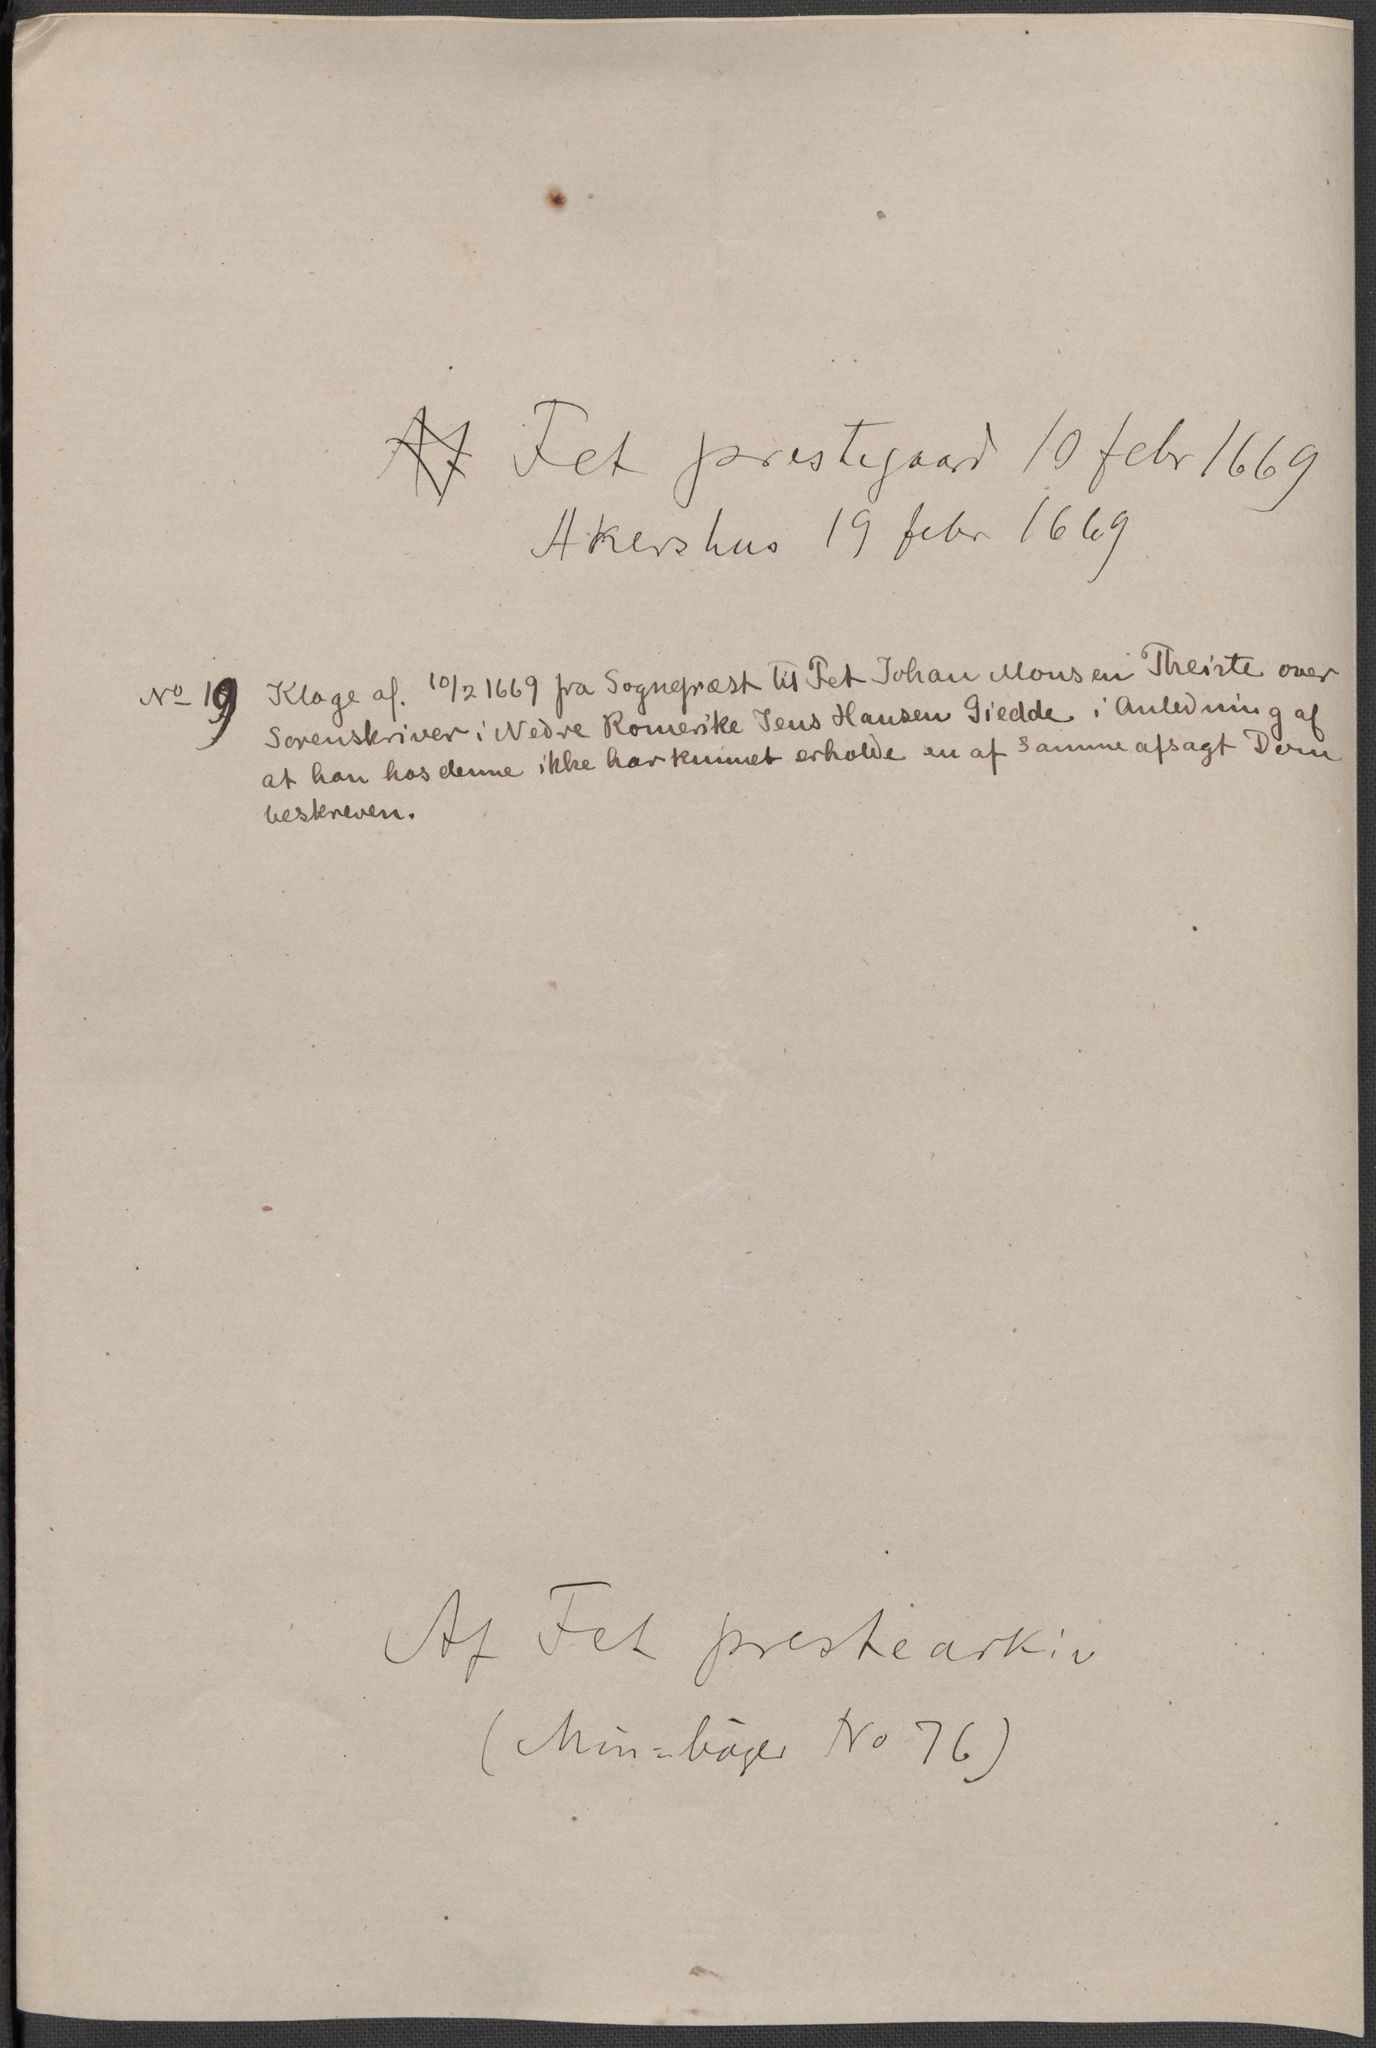 Fet prestegaard 10 febr 1669
Akershus 19 febr 1669
No 19 Klage af. 10/2 1669 fra Sognepræst til Fet Johan Monsen Theiste over
Sorenskriver i Nedre Romerike Jens Hansen Giedde i Anledning af
at han hos denne ikke har kunnet erholde en af samme afsagt Dom
beskreven.
Af Fet prestearkiv
(Min=bøger No 76)